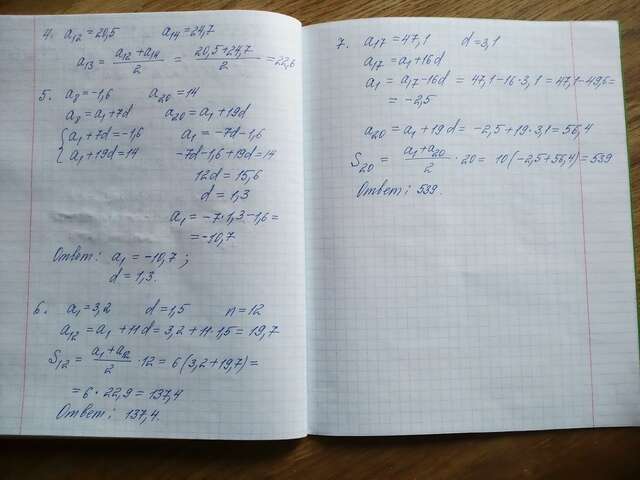 4. a₁₂ = 20,5 a₁₄ = 24,7
a₁₃ = (a₁₂ + a₁₄)/2 = (20,5 + 24,7)/2 = 22,6
5. a₈ = -1,6 a₂₀ = 14
a₈ = a₁ + 7d a₂₀ = a₁ + 19d
{ a₁ + 7d = -1,6 a₁ = -7d - 1,6
{ a₁ + 19d = 14 -7d - 1,6 + 19d = 14
12d = 15,6
d = 1,3
a₁ = -7·1,3 - 1,6 =
= -10,7
Ответ: a₁ = -10,7 ;
d = 1,3.
6. a₁ = 3,2 d = 1,5 n = 12
a₁₂ = a₁ + 11d = 3,2 + 11·1,5 = 19,7
S₁₂ = (a₁ + a₁₂)/2 · 12 = 6(3,2 + 19,7) =
= 6 · 22,9 = 137,4
Ответ: 137,4.
7. a₁₇ = 47,1 d = 3,1
a₁₇ = a₁ + 16d
a₁ = a₁₇ - 16d = 47,1 - 16·3,1 = 47,1 - 49,6 =
= -2,5
a₂₀ = a₁ + 19d = -2,5 + 19·3,1 = 56,4
S₂₀ = (a₁ + a₂₀)/2 · 20 = 10(-2,5 + 56,4) = 539
Ответ: 539.